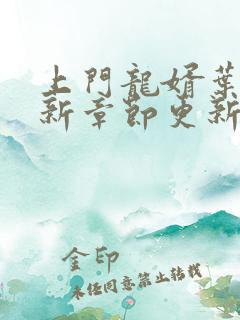 上門龍婿葉
新章節更新
金印
未經同意禁止轉載